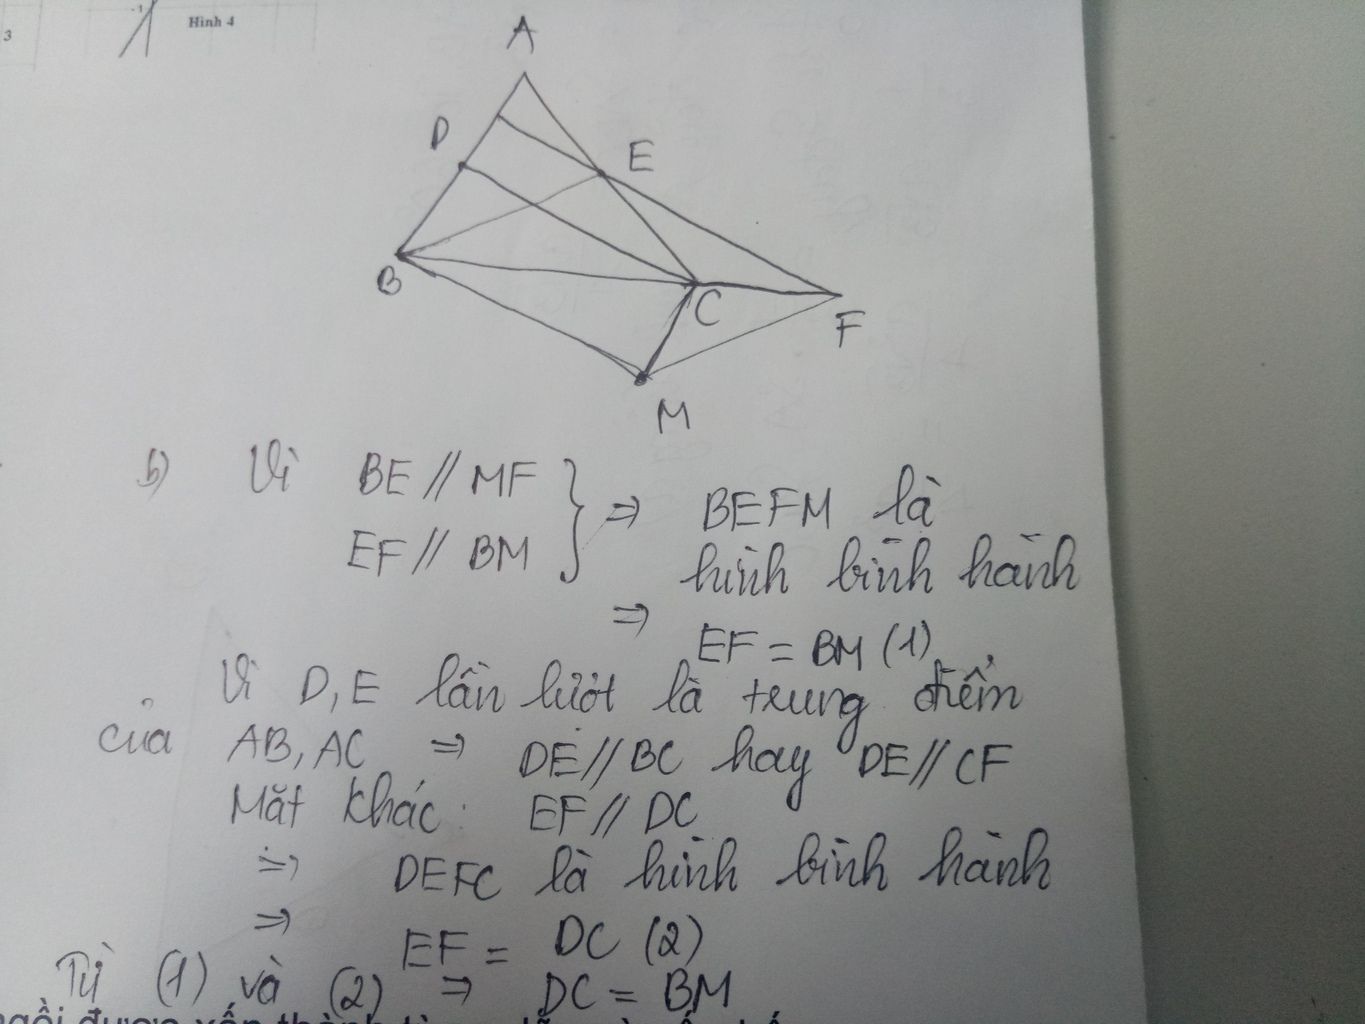 3
Hình 4
A
D
E
B
C
F
M
b) Vì BE // MF
EF // BM
⇒ BEFM là
hình bình hành
⇒ EF = BM (1)
Vì D, E lần lượt là trung điểm
của AB, AC ⇒ DE // BC hay DE // CF
Mặt khác: EF // DC
⇒ DEFC là hình bình hành
⇒ EF = DC (2)
Từ (1) và (2) ⇒ DC = BM